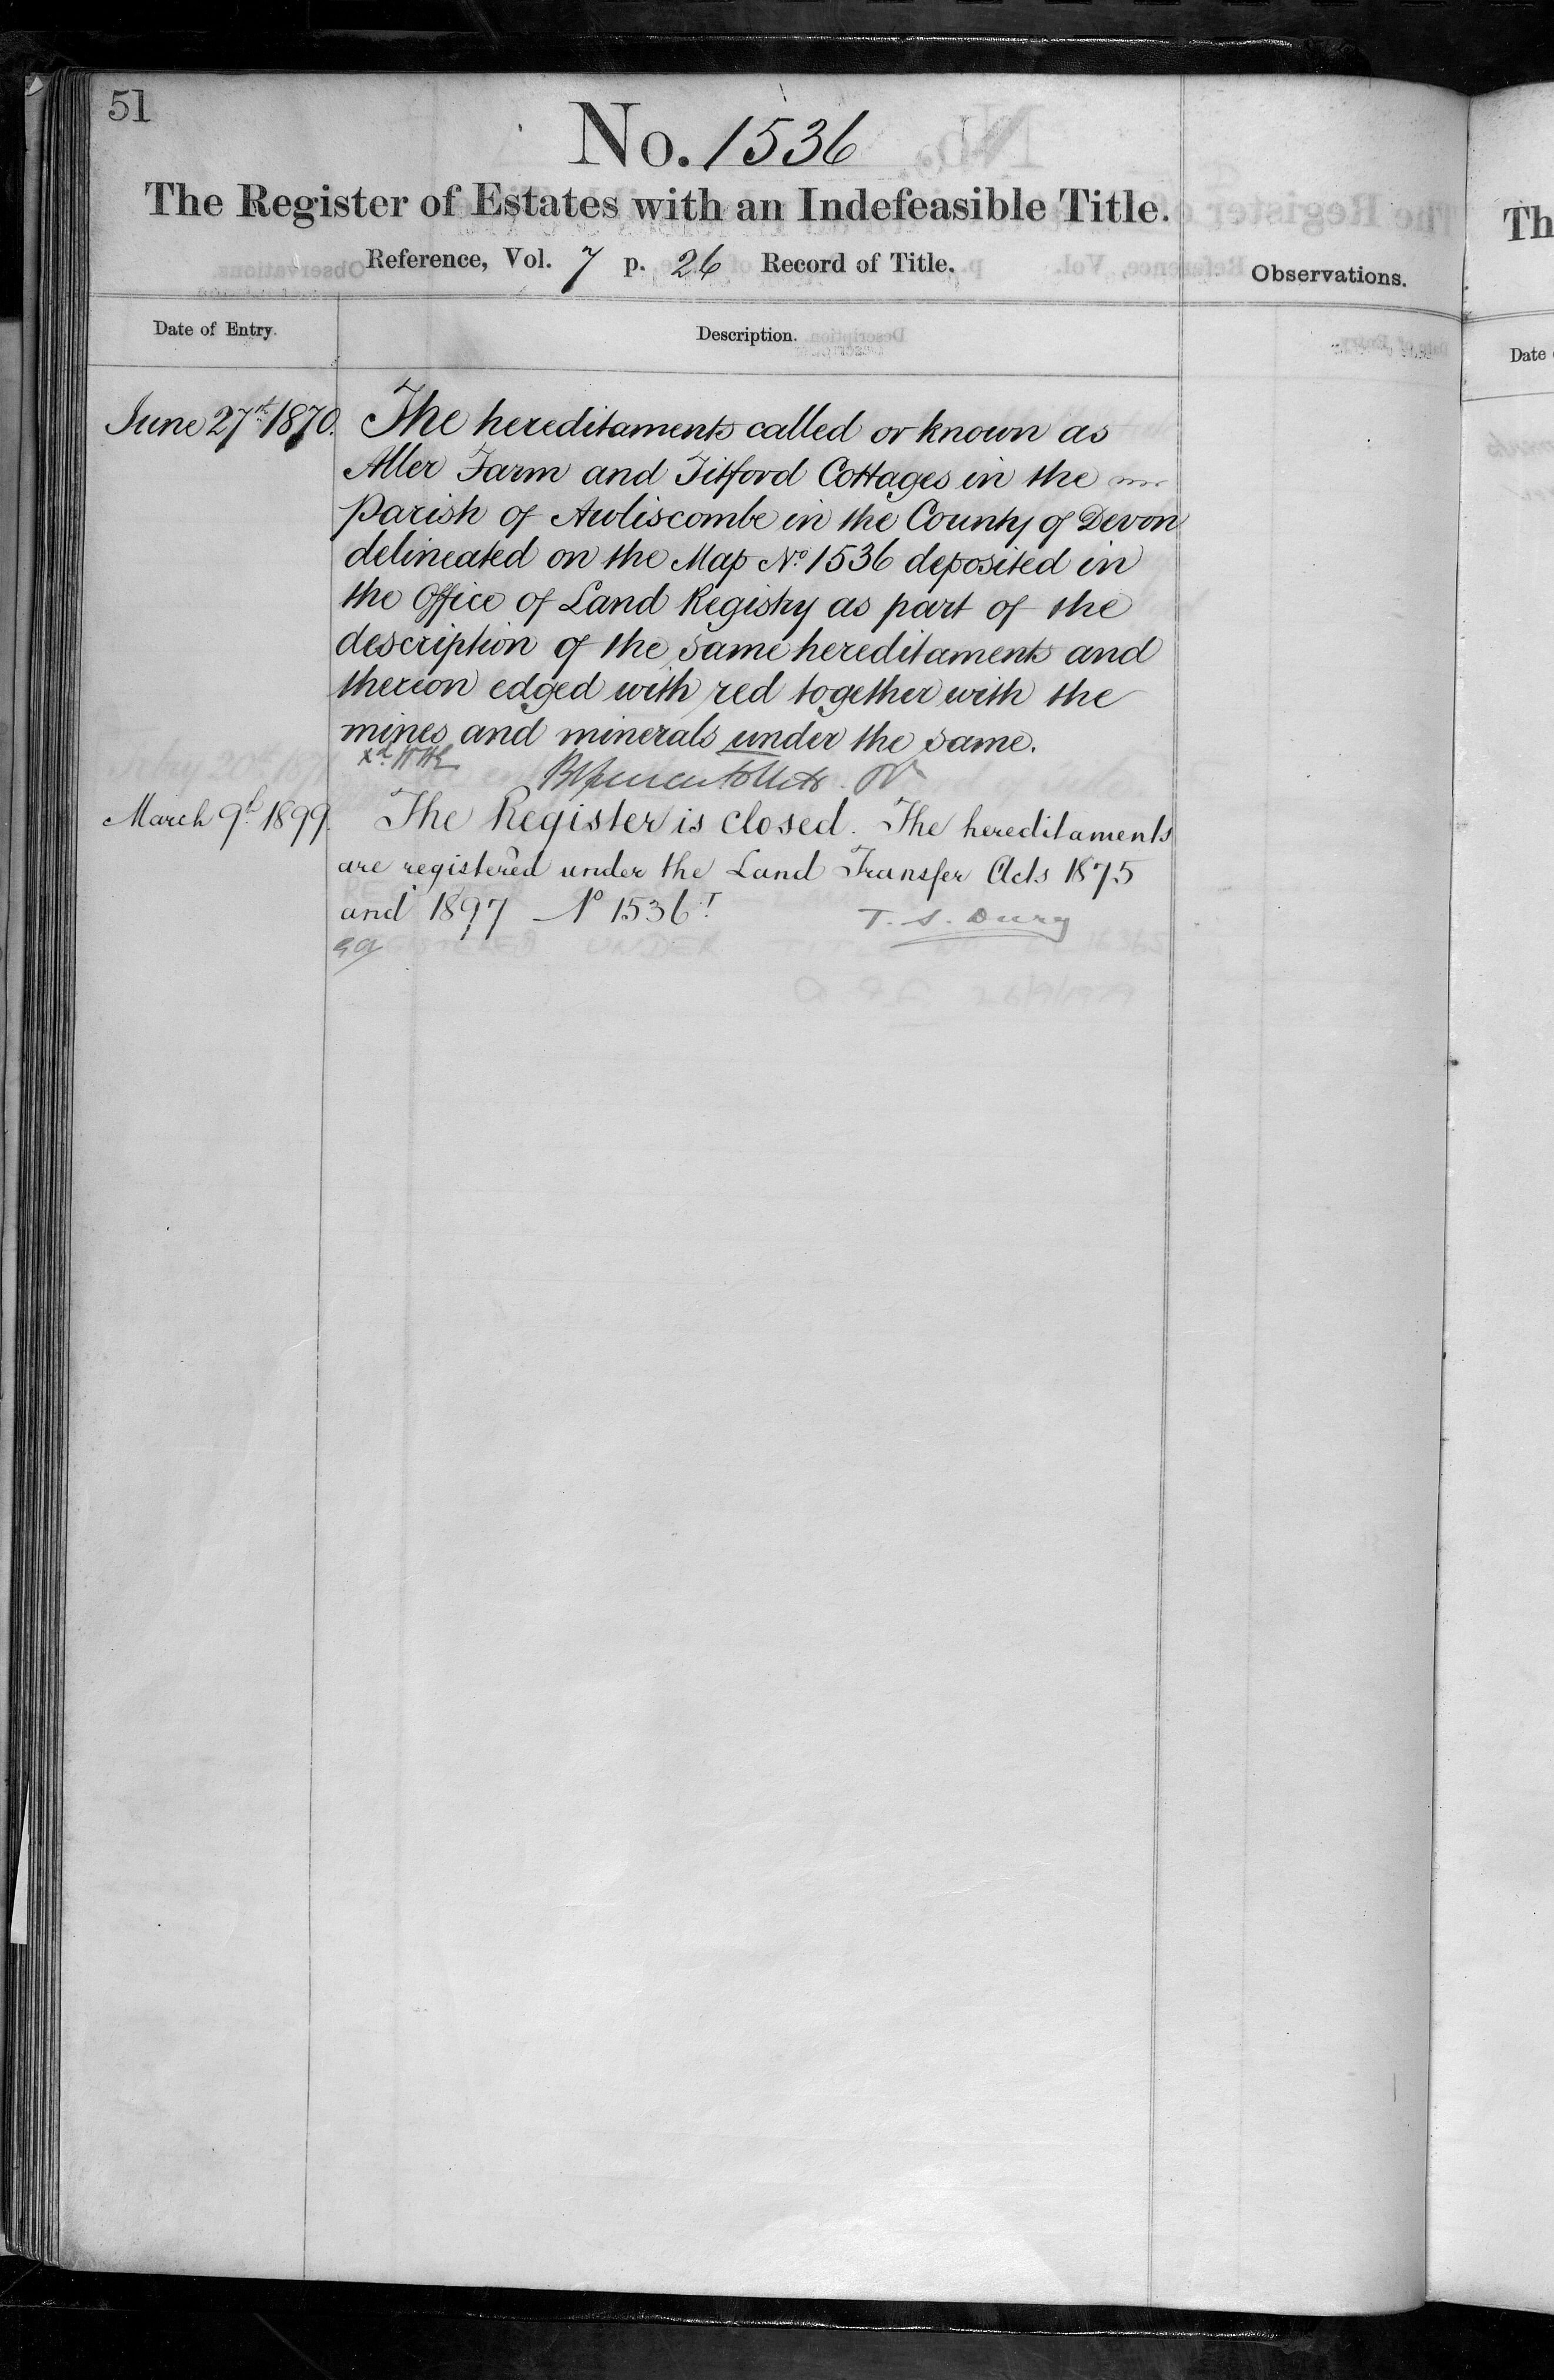 51
No. 1536
The Register of Estates with an Indefeasible Title.
Reference, Vol. 7 p. 26 Record of Title.
Observations.
Date of Entry.
Description.
June 27th 1870.
The hereditaments called or known as
Aller Farm and Titford Cottages in the
Parish of Awliscombe in the County of Devon
delineated on the Map No. 1536 deposited in
the Office of Land Registry as part of the
description of the same hereditaments and
thereon edged with red together with the
mines and minerals under the same.
March 9th 1899.
The Register is closed. The hereditaments
are registered under the Land Transfer Acts 1875
and 1897 No 1536 T
T. S. Dury
Th
Date